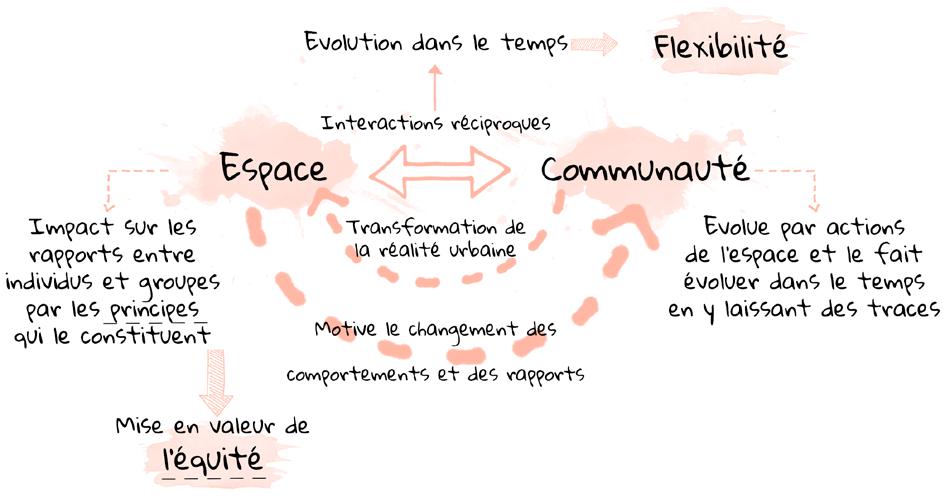 Evolution dans le temps
Flexibilité
Interactions réciproques
Espace
Communauté
Impact sur les
rapports entre
individus et groupes
par les principes
qui le constituent
Transformation de
la réalité urbaine
Evolue par actions
de l'espace et le fait
évoluer dans le temps
en y laissant des traces
Motive le changement des
comportements et des rapports
Mise en valeur de
l'équité